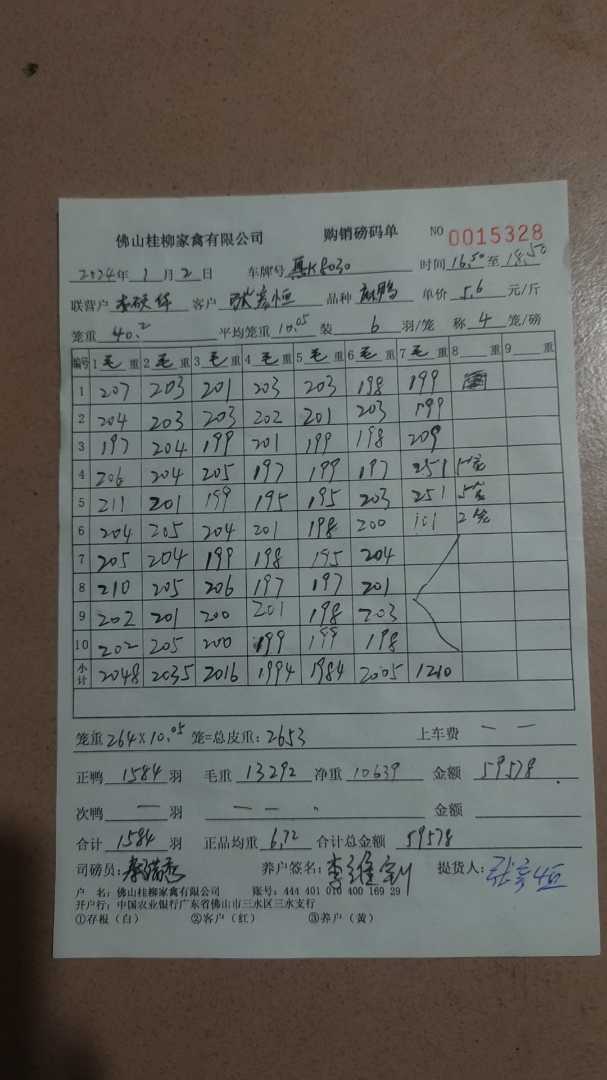 佛山桂柳家禽有限公司 购销磅码单 NO 0015328
2024年1月2日 车牌号 K8030 时间 16.50 至 18.50
联营户 客户 张彦恒 品种 麻鸭 单价 5.6 元/斤
笼重 40.2 平均笼重 10.05 装 6 羽/笼 称 4 笼/磅
编号 1毛重 2毛重 3毛重 4毛重 5毛重 6毛重 7毛重 8 重 9 重
1 207 203 201 203 203 198 199
2 204 203 203 202 201 203 199
3 197 204 199 201 199 198 209
4 206 204 205 197 199 197 251 5笼
5 211 201 199 195 195 203 251 5笼
6 204 205 204 201 198 200 101 2笼
7 205 204 199 198 195 204
8 210 205 206 197 197 201
9 202 201 200 201 198 203
10 202 205 200 199 199 198
小计 2048 2035 2016 1994 1984 2005 1210
笼重 264×10.05 笼=总皮重: 2653 上车费 — —
正鸭 1584 羽 毛重 13292 净重 10639 金额 59578
次鸭 — 羽 — — 金额
合计 1584 羽 正品均重 6.72 合计总金额 59578
司磅员: 养户签名: 提货人:
户 名: 佛山桂柳家禽有限公司 账号: 444 401 010 400 169 29
开户行: 中国农业银行广东省佛山市三水区三水支行
①存根(白) ②客户(红) ③养户(黄)